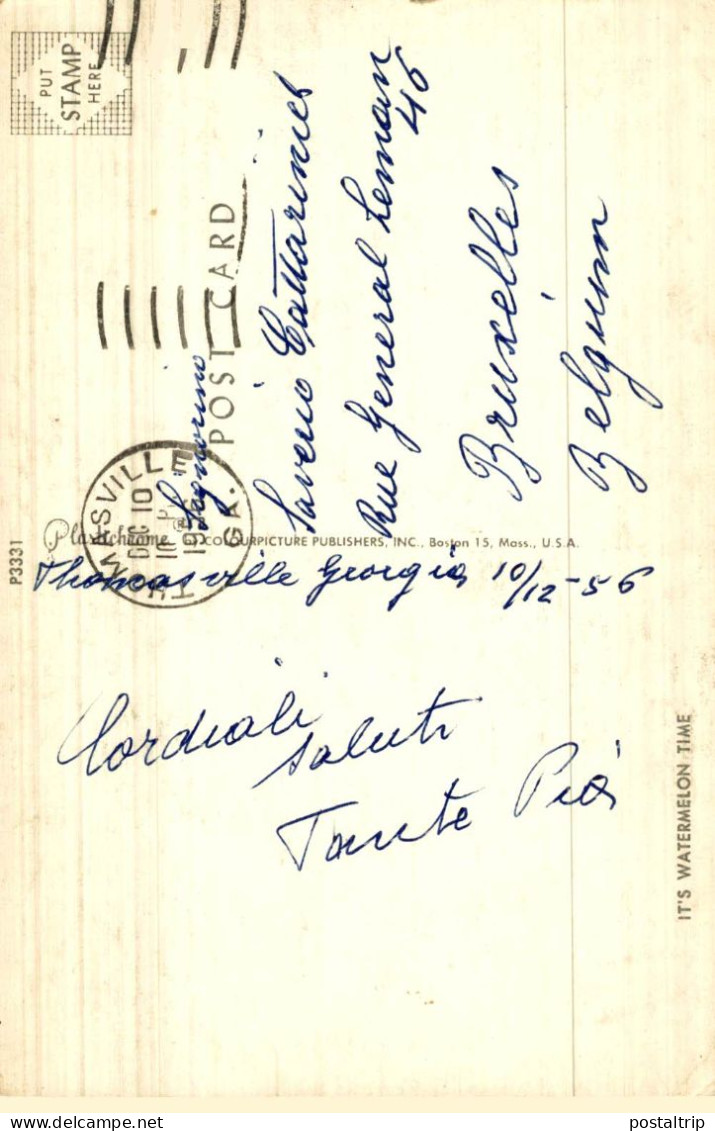 PUT
STAMP
HERE
POST CARD
THOMASVILLE
GA.
DEC 10
1956
Signorino
Saverio
Rue General Leman
46
Bruxelles
Belgium
P3331
Plastichrome ®
COLOURPICTURE PUBLISHERS, INC., Boston 15, Mass., U.S.A.
Thomasville Georgia 10/12-56
Cordiali
saluti
Tante Pia
IT'S WATERMELON TIME
postaltrip